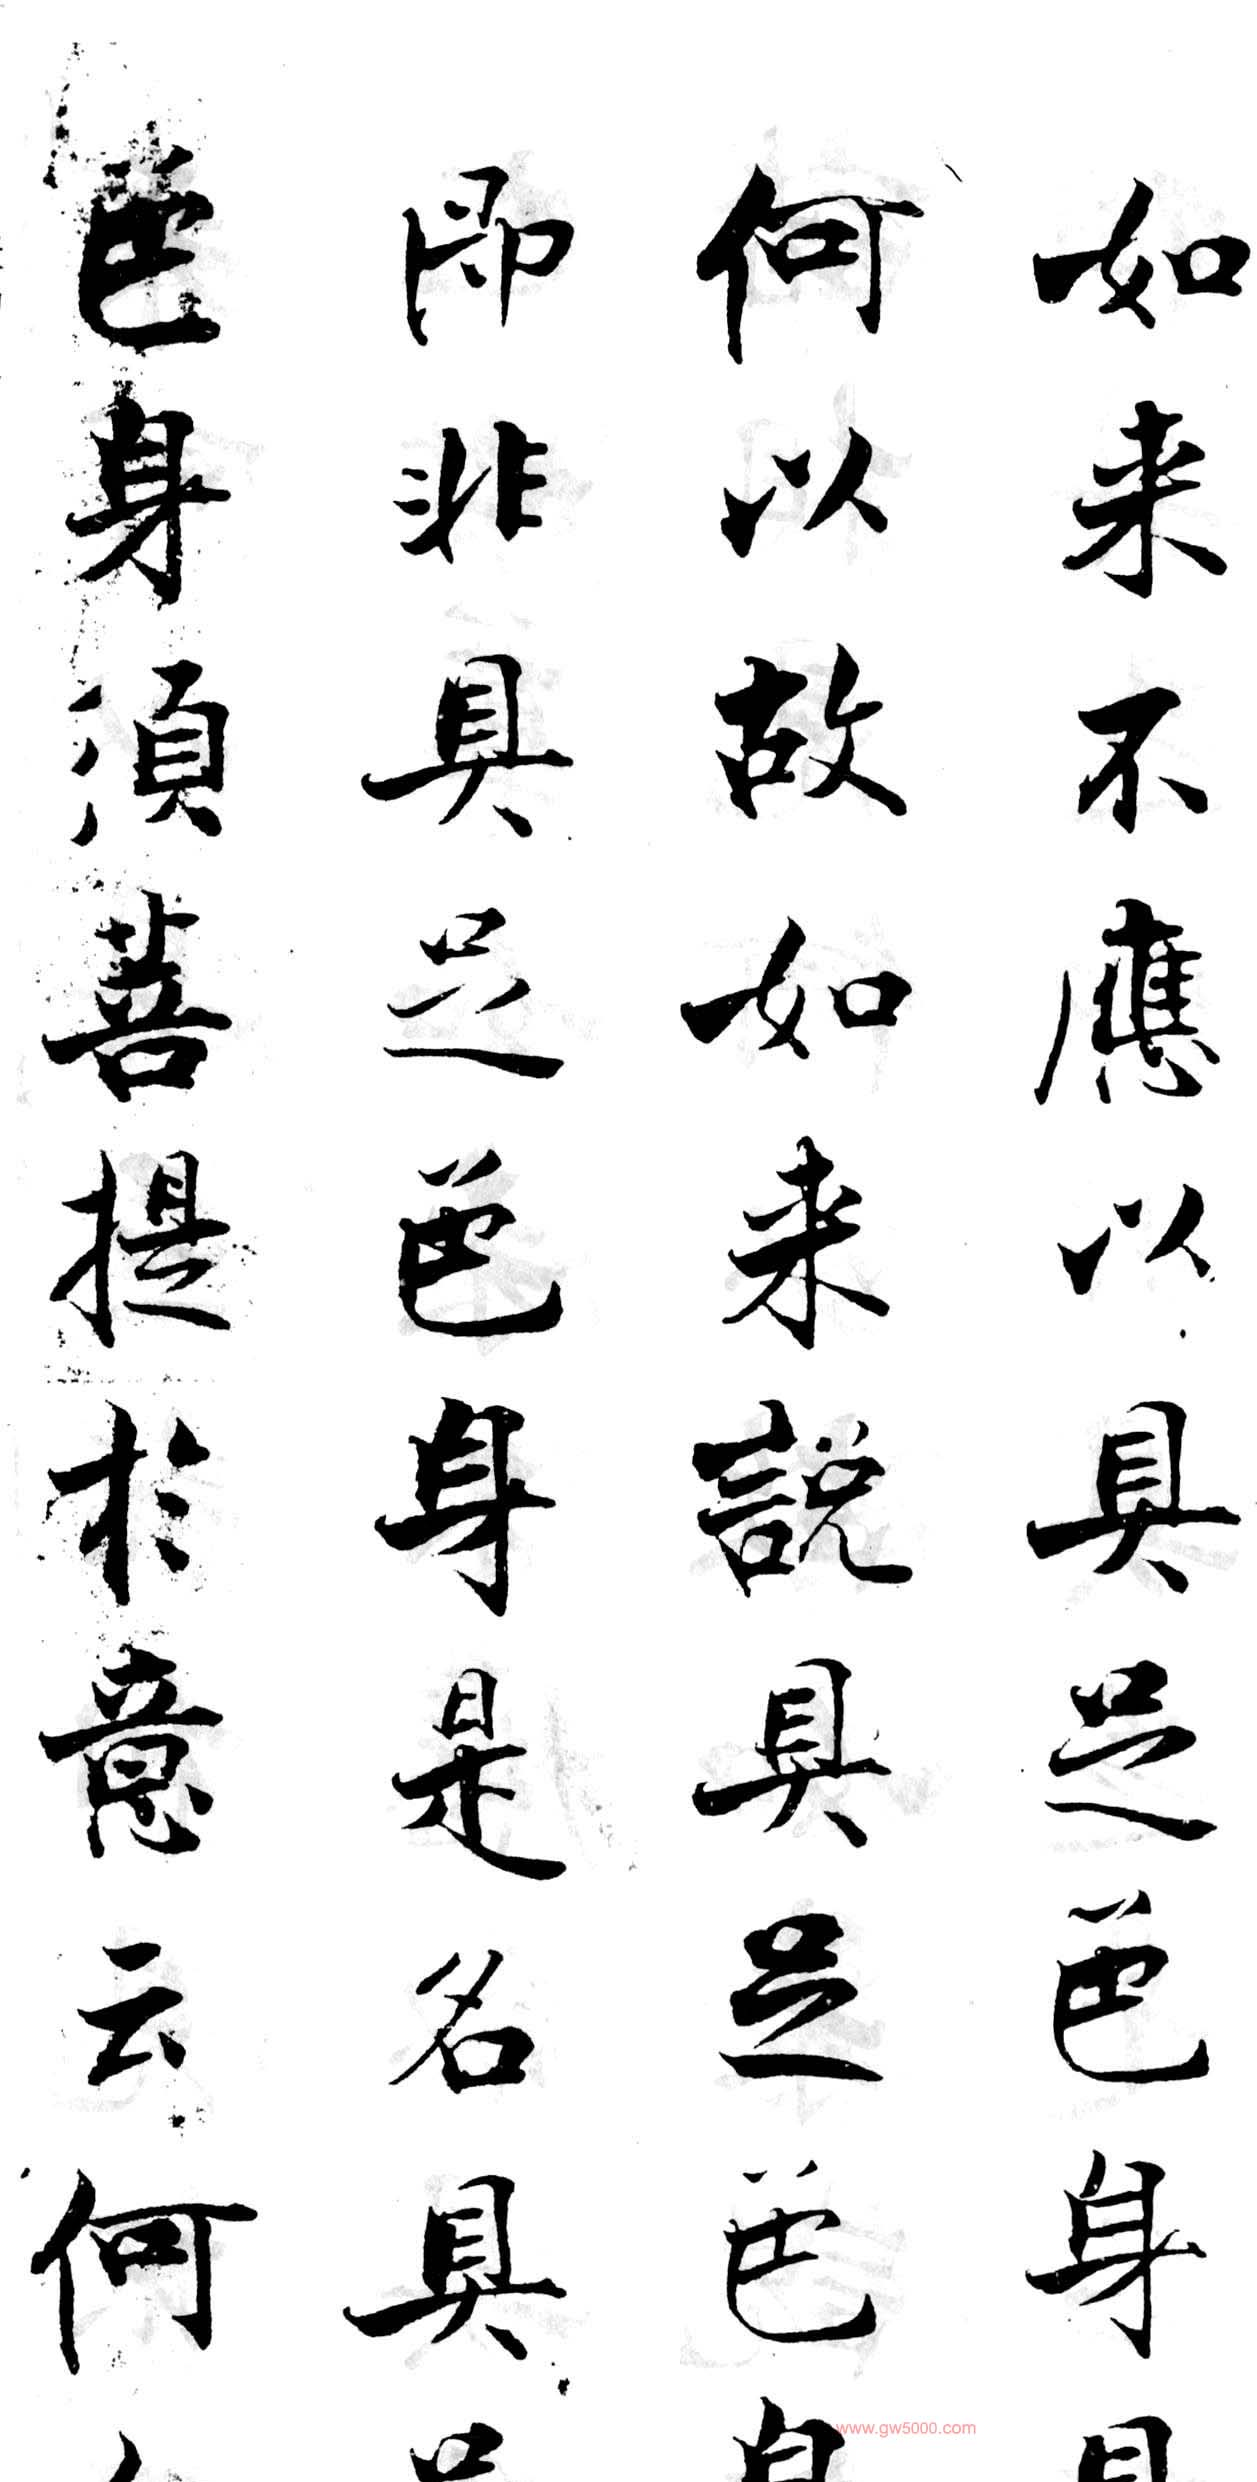 如来不應以具足色身
何以故如来説具足色
即非具足色身是名具
色身須菩提於意云何
www.gw5000.com